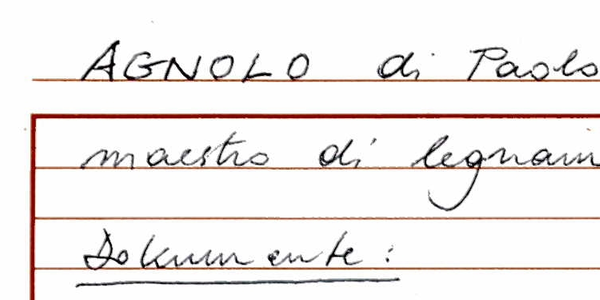 AGNOLO di Paolo
maestro di legnam
Dokumente: